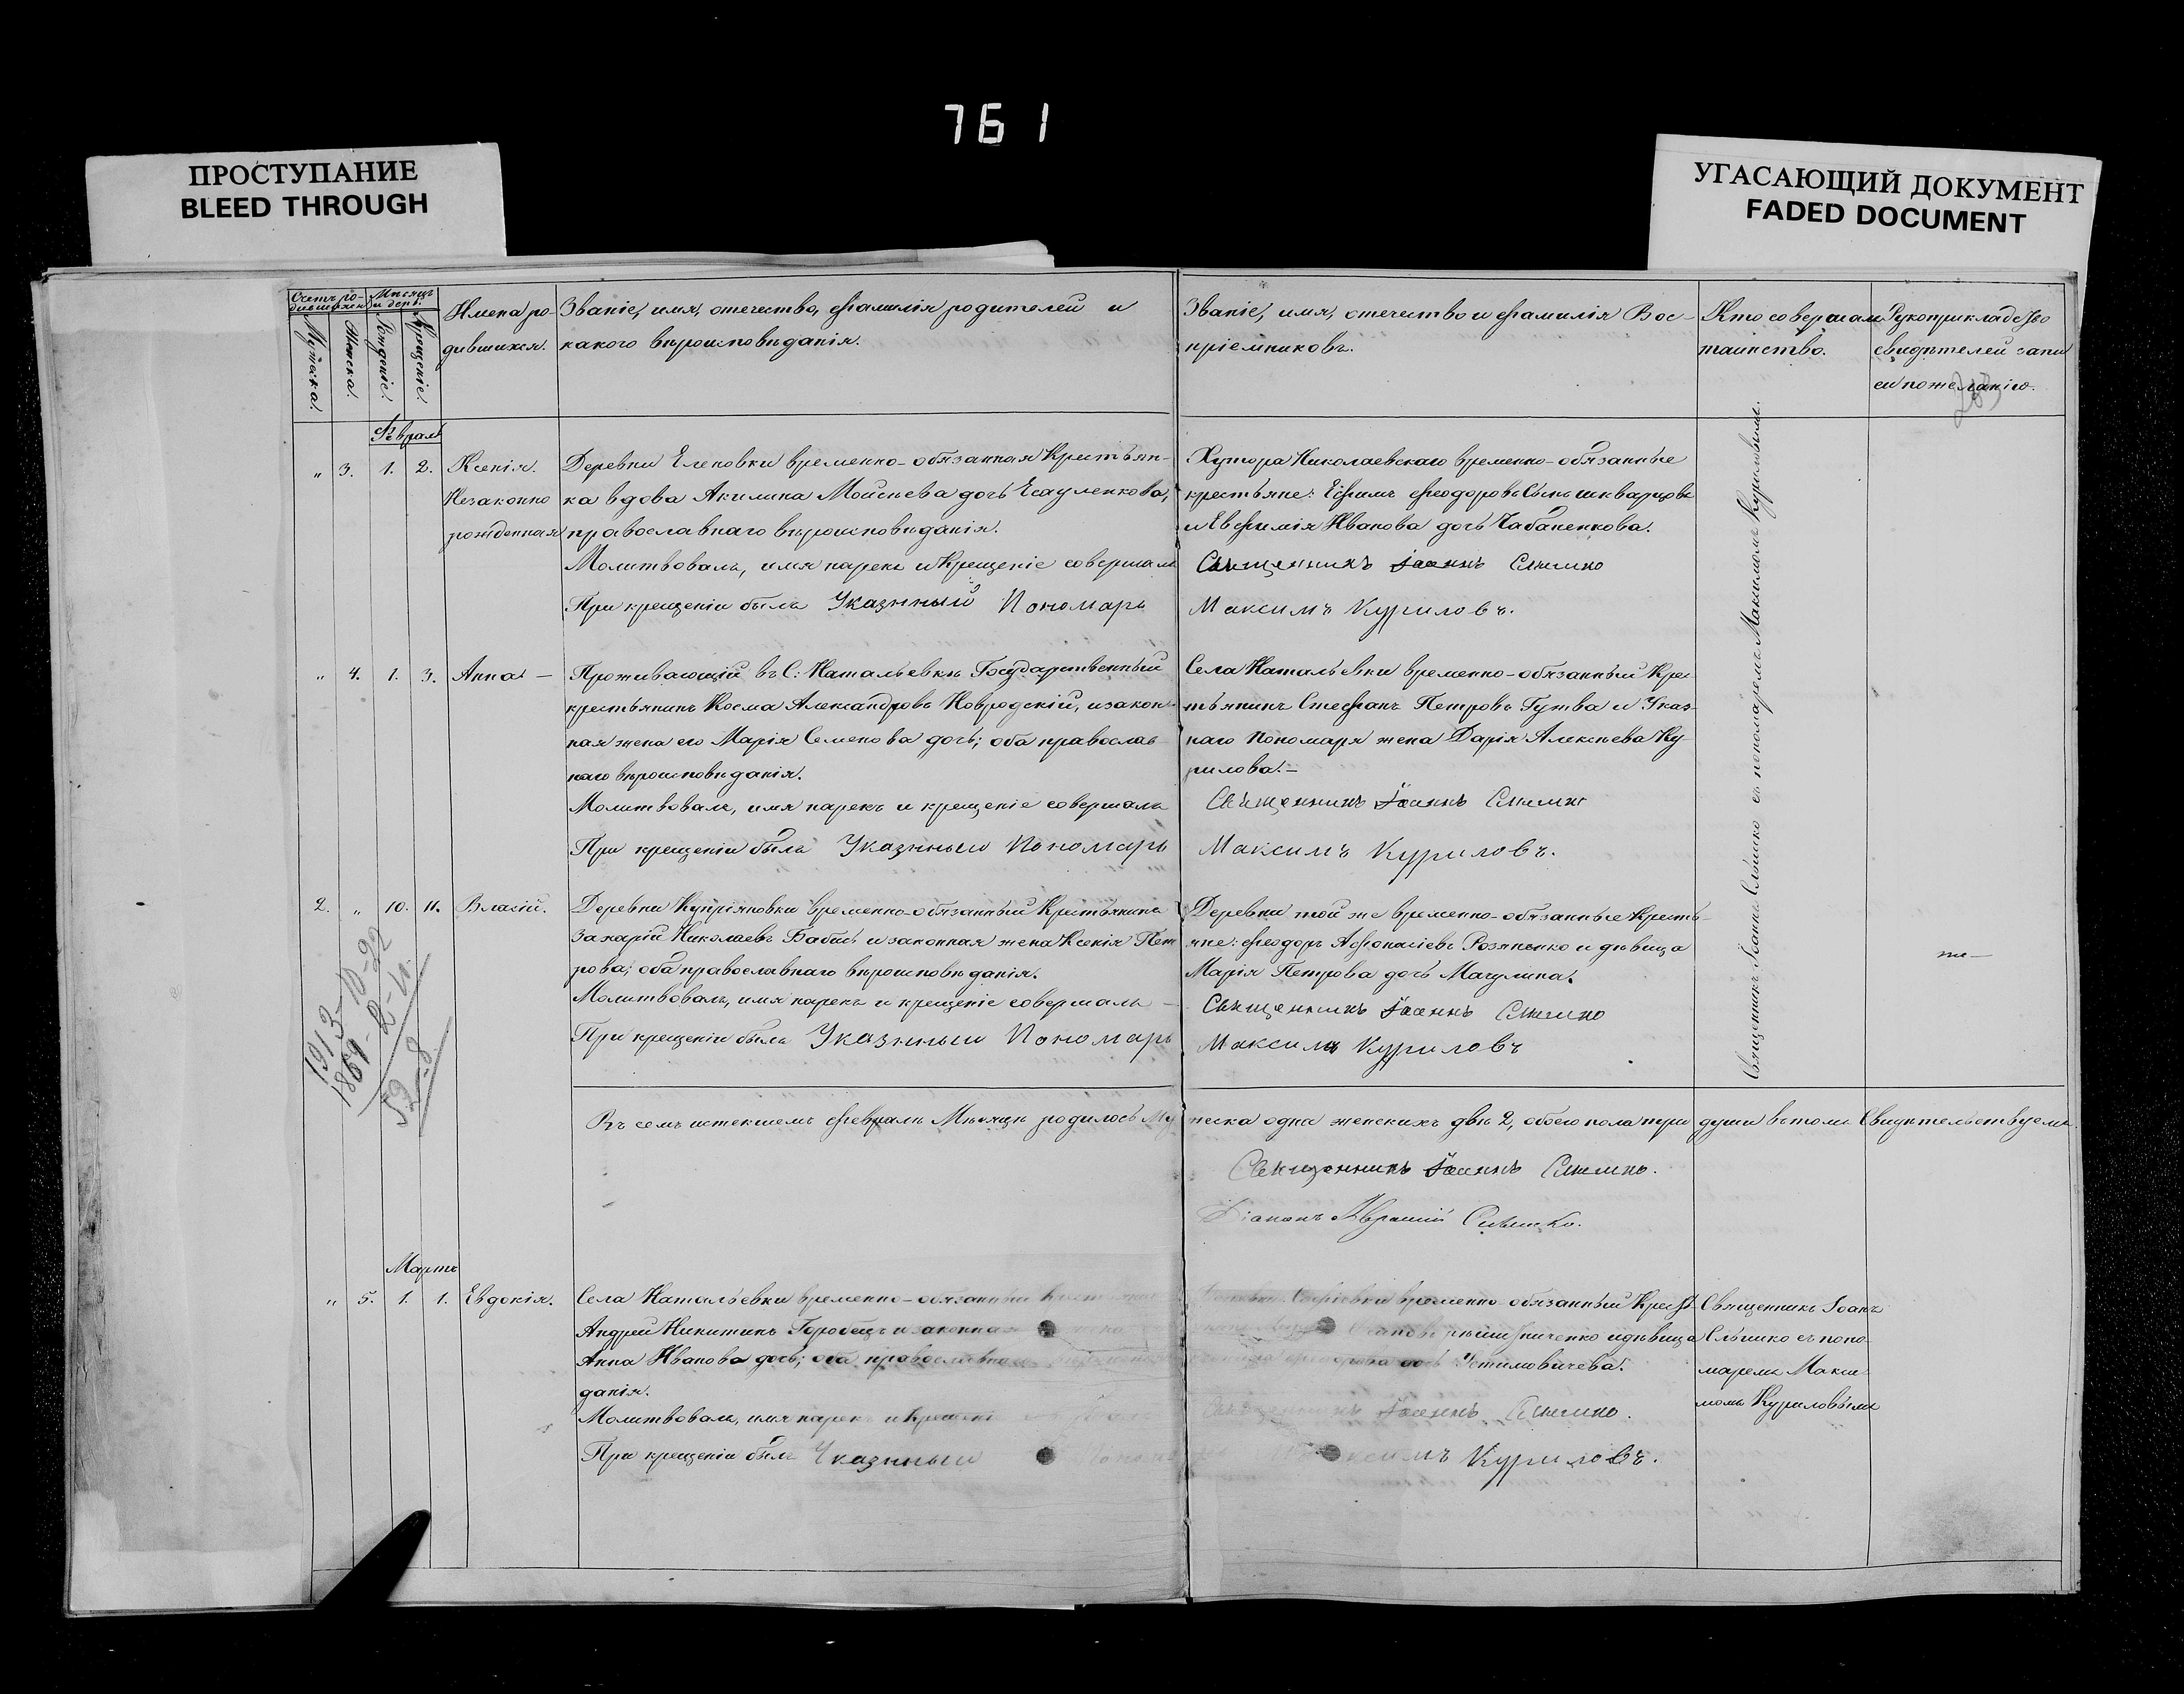 761
ПРОСТУПАНИЕ
BLEED THROUGH
УГАСАЮЩИЙ ДОКУМЕНТ
FADED DOCUMENT
Счетъ ро-
дившихся
Мѣсяцъ
и день.
Мужска.
Женска.
Рожденіе.
Крещеніе.
Имена ро-
дившихся.
Званіе, имя, отечество, фамилія родителей и
какого вѣроисповѣданія.
Званіе, имя, отечество и фамилія Вос-
пріемниковъ.
Кто совершалъ
таинство.
Рукоприкладство
свидѣтелей запи
си по желанію.
Февраль
" 3. 1. 2. Ксенія.
Незаконно
рожденная
Деревни Еленовки временно-обязанная Крестьян-
ка вдова Акилина Мойсѣева дочь Есауленкова,
православнаго вѣроисповѣданія.
Молитвовалъ, имя нарекъ и Крещеніе совершалъ
При крещеніи былъ Указнный Пономарь
Хутора Николаевскаго временно-обязанные
крестьяне: Ефимъ Феодоровъ Сынъ
и Евфимія Иванова дочь Чабаненкова.
Священникъ Іоаннъ Слѣшко
Максимъ Куриловъ.
" 4. 1. 3. Анна —
Проживающій въ С: Натальевкѣ Государственный
крестьянинъ Косма Александровъ Новродскій, и закон-
ная жена его Марія Семенова дочь; оба православ-
наго вѣроисповѣданія.
Молитвовалъ, имя нарекъ и крещеніе совершалъ
При крещеніи былъ Указнный Пономарь
Села Натальевки временно-обязанный Крес-
тьянинъ Стефанъ Петровъ Гужва и Указ-
наго Пономаря жена Дарія Алексѣева Ку-
рилова.—
Священникъ Іоаннъ Слѣшко
Максимъ Куриловъ.
2. " 10. 11. Власій.
Деревни Купріяновки временно-обязанный Крестьянинъ
Захарій Николаевъ Бабичъ и законная жена Ксенія Пет
рова; оба православнаго вѣроисповѣданія.
Молитвовалъ, имя нарекъ и крещеніе совершалъ —
При крещеніи былъ Указнный Пономарь
Деревни той же временно-обязанные Кресть-
яне: Феодоръ Афонасіевъ Розяненко и дѣвица
Марія Петрова дочь Мачулина.
Священникъ Іоаннъ Слѣшко
Максимъ Куриловъ
Священникъ Іоаннъ Слѣшко съ пономаремъ Максимомъ Куриловымъ.
1913-10-22
1869-2-11.
52-8
Въ семъ истекшемъ февралѣ Мѣсяцѣ родилось Му жеска одна женскихъ двѣ 2, обоего пола три души въ томъ Свидѣтельствуемъ.
Священникъ Іоаннъ Слѣшко.
Діаконъ Слѣшко.
Мартъ
" 5. 1. 1. Евдокія.
Села Натальевки временно-обязанный
Андрей Никитинъ Горобецъ и законная жена
Анна Иванова дочь; оба православнаго
данія.
Молитвовалъ, имя нарекъ и Крещеніе
При крещеніи былъ Указнный Пономарь
Софіевки временно-обязанный Крест-
и дѣвица
Феодорова дочь Устимовичева.
Священникъ Іоаннъ Слѣшко.
Максимъ Куриловъ.
Священникъ Іоаннъ
Слѣшко съ поно-
маремъ Макси-
момъ Куриловымъ